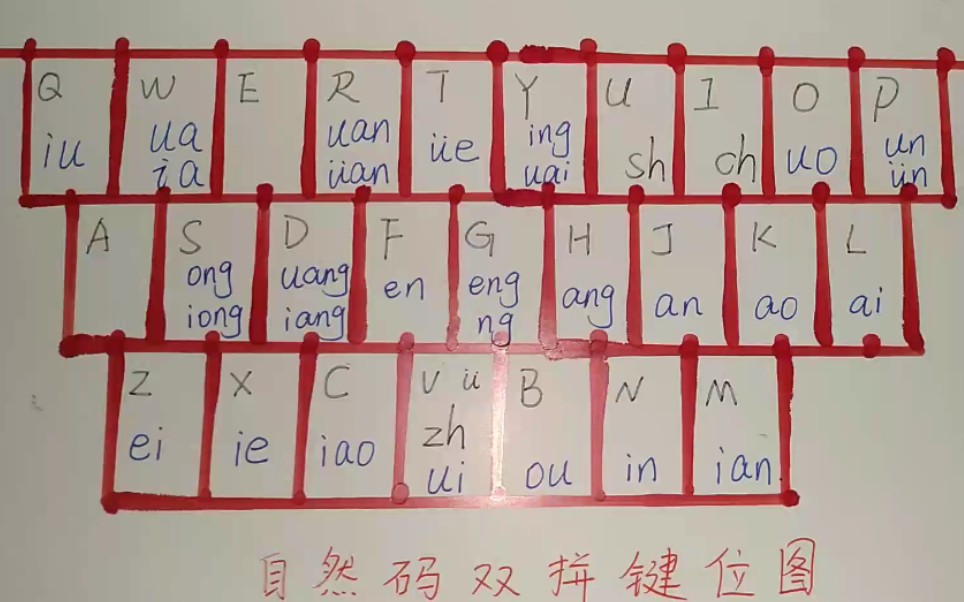 Q W E R T Y U I O P
iu ua uan üe ing sh ch uo un
ia üan uai ün
A S D F G H J K L
ong uang en eng ang an ao ai
iong iang ng
Z X C V ü B N M
ei ie iao zh ou in ian
ui
自然码双拼键位图